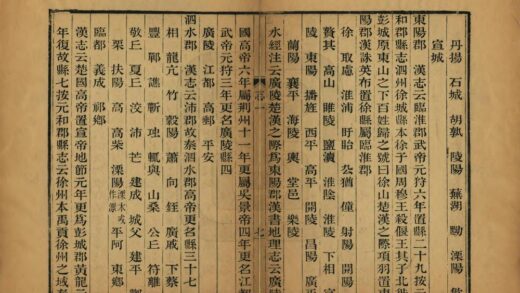 丹揚 石城 胡孰 陵陽 蕪湖 黝 溧陽 歙
宣城
東陽郡 漢志云臨淮郡武帝元狩六年置縣二十九按元
和郡縣志泗州徐城縣本徐子國周穆王殺偃王其子北徙
彭城原東山之下百姓歸之號曰徐山楚漢之際項羽置東
陽郡漢誅英布置徐縣屬臨淮郡
徐 取慮 淮浦 盱眙 厹猶 僮 射陽 開陽
贅其 高山 睢陵 鹽瀆 淮陰 淮陵 下相 富
陵 東陽 播旌 西平 高平 開陵 昌陽 廣平
蘭陽 襄平 海陵 輿 堂邑 樂陵
水經注云廣陵楚漢之際為東陽郡漢書地理志云廣陵
志一 七
國高帝六年屬荊州十一年更屬吳景帝四年更名江都
武帝元狩三年更名廣陵縣四
廣陵 江都 高郵 平安
泗水郡 漢志云沛郡故秦泗水郡高帝更名縣三十七
相 龍亢 竹 穀陽 蕭 向 銍 廣戚 下蔡
豐 鄲 譙 蘄 輒與 山桑 公丘 符離
敬丘 夏丘 洨 沛 芒 建成 城父 建平
栗 扶陽 高 高柴 溧陽 溧本或作漂 平阿 東鄉
臨都 義成 祁鄉
漢志云楚國高帝置宣帝地節元年更為彭城郡黃龍元
年復故縣七按元和郡縣志云徐州本禹貢徐州之域春